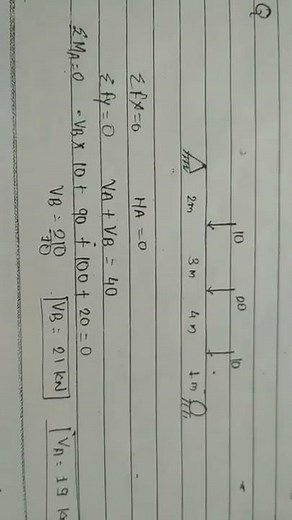 Q
10 20 10
2m 3m 4m 1m
Σfx=0 HA=0
Σfy=0 VA+VB=40
ΣMA=0 -VB×10+90+100+20=0
VB=210/10 VB=21KN VA=19